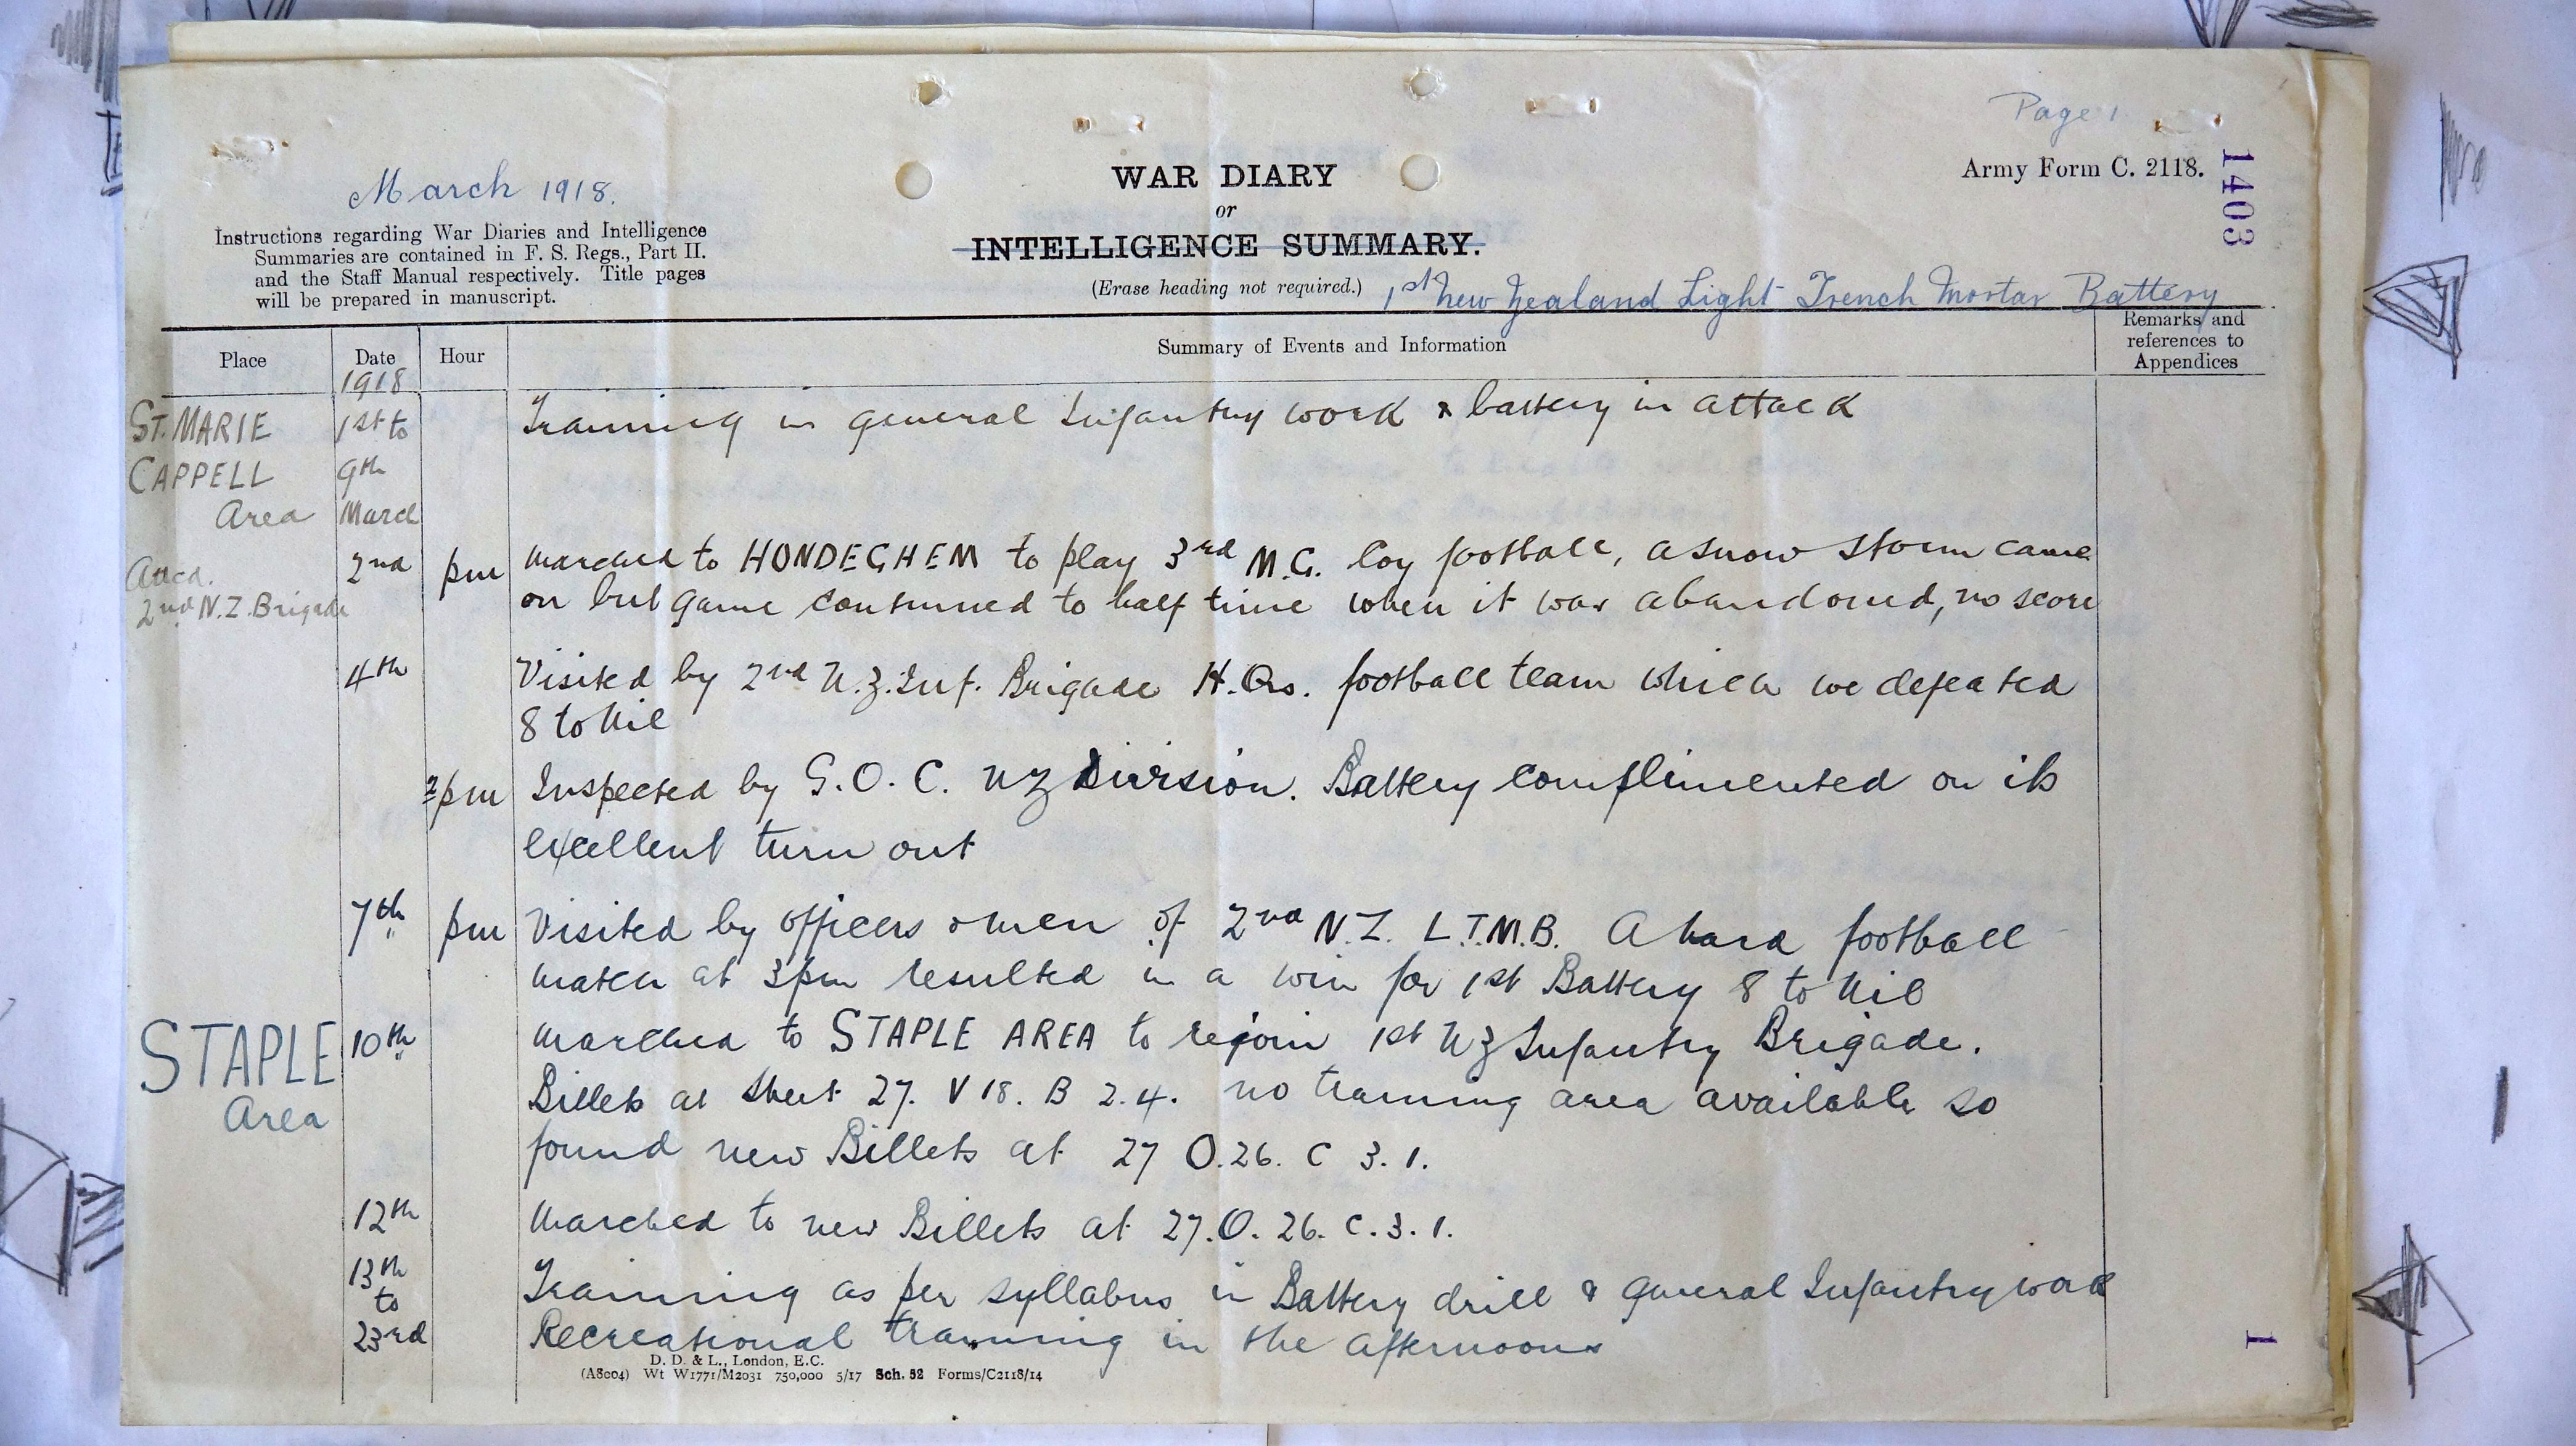 Page 1
Army Form C. 2118.
1403
March 1918.
WAR DIARY
or
INTELLIGENCE SUMMARY.
(Erase heading not required.)
1st New Zealand Light Trench Mortar Battery
Instructions regarding War Diaries and Intelligence
Summaries are contained in F. S. Regs., Part II.
and the Staff Manual respectively. Title pages
will be prepared in manuscript.
Place Date Hour Summary of Events and Information Remarks and references to Appendices
1918
ST. MARIE 1st to Training in general Infantry work & battery in attack
CAPPELL 9th
Area March
2nd pm Marched to HONDEGHEM to play 3rd M.G. Coy football, a snow storm came
2nd N.Z. Brigade on but game continued to half time when it was abandoned, no score
4th Visited by 2nd N.Z. Inf. Brigade H.Qrs. football team which we defeated
8 to Nil
2pm Inspected by G.O.C. NZ Division. Battery complimented on its
excellent turn out
7th pm Visited by officers & men of 2nd N.Z. L.T.M.B. A hard football
match at 3pm resulted in a win for 1st Battery 8 to Nil
STAPLE 10th Marched to STAPLE AREA to rejoin 1st NZ Infantry Brigade.
Area Billets at Sheet 27. V 18. B 2.4. no training area available so
found new Billets at 27 O.26. C 3.1.
12th Marched to new Billets at 27.O.26.C.3.1.
13th to Training as per syllabus in Battery drill & general Infantry work
23rd Recreational training in the afternoons
D. D. & L., London, E.C.
(A8004) Wt W1771/M2031 750,000 5/17 Sch. 52 Forms/C2118/14
1